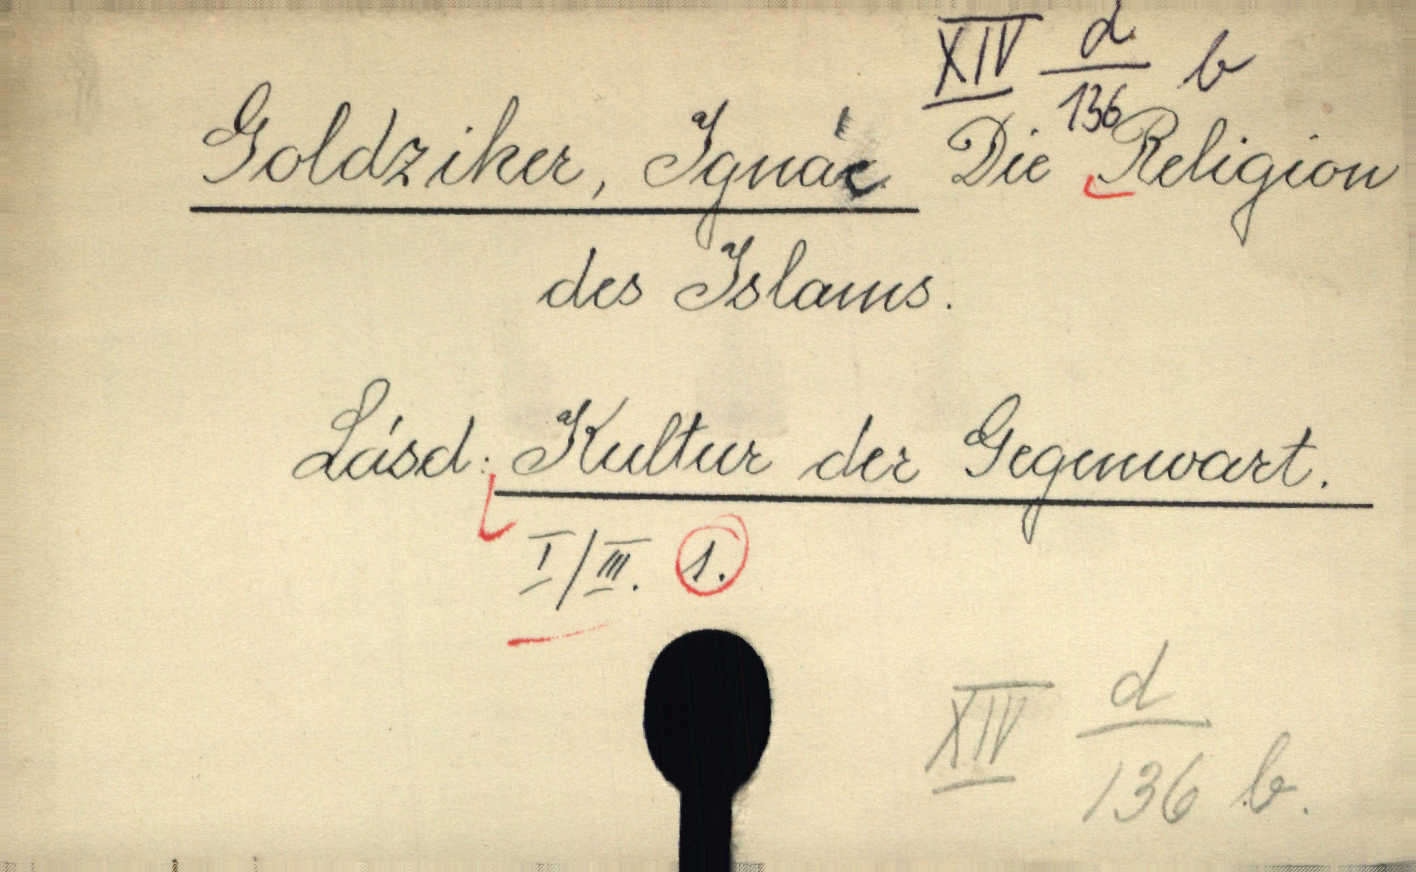 XIV d/136 b
Goldziker, Ignác Die Religion
des Islams.
Lásd: Kultur der Gegenwart.
I/III. 1.
XIV d/136 b.